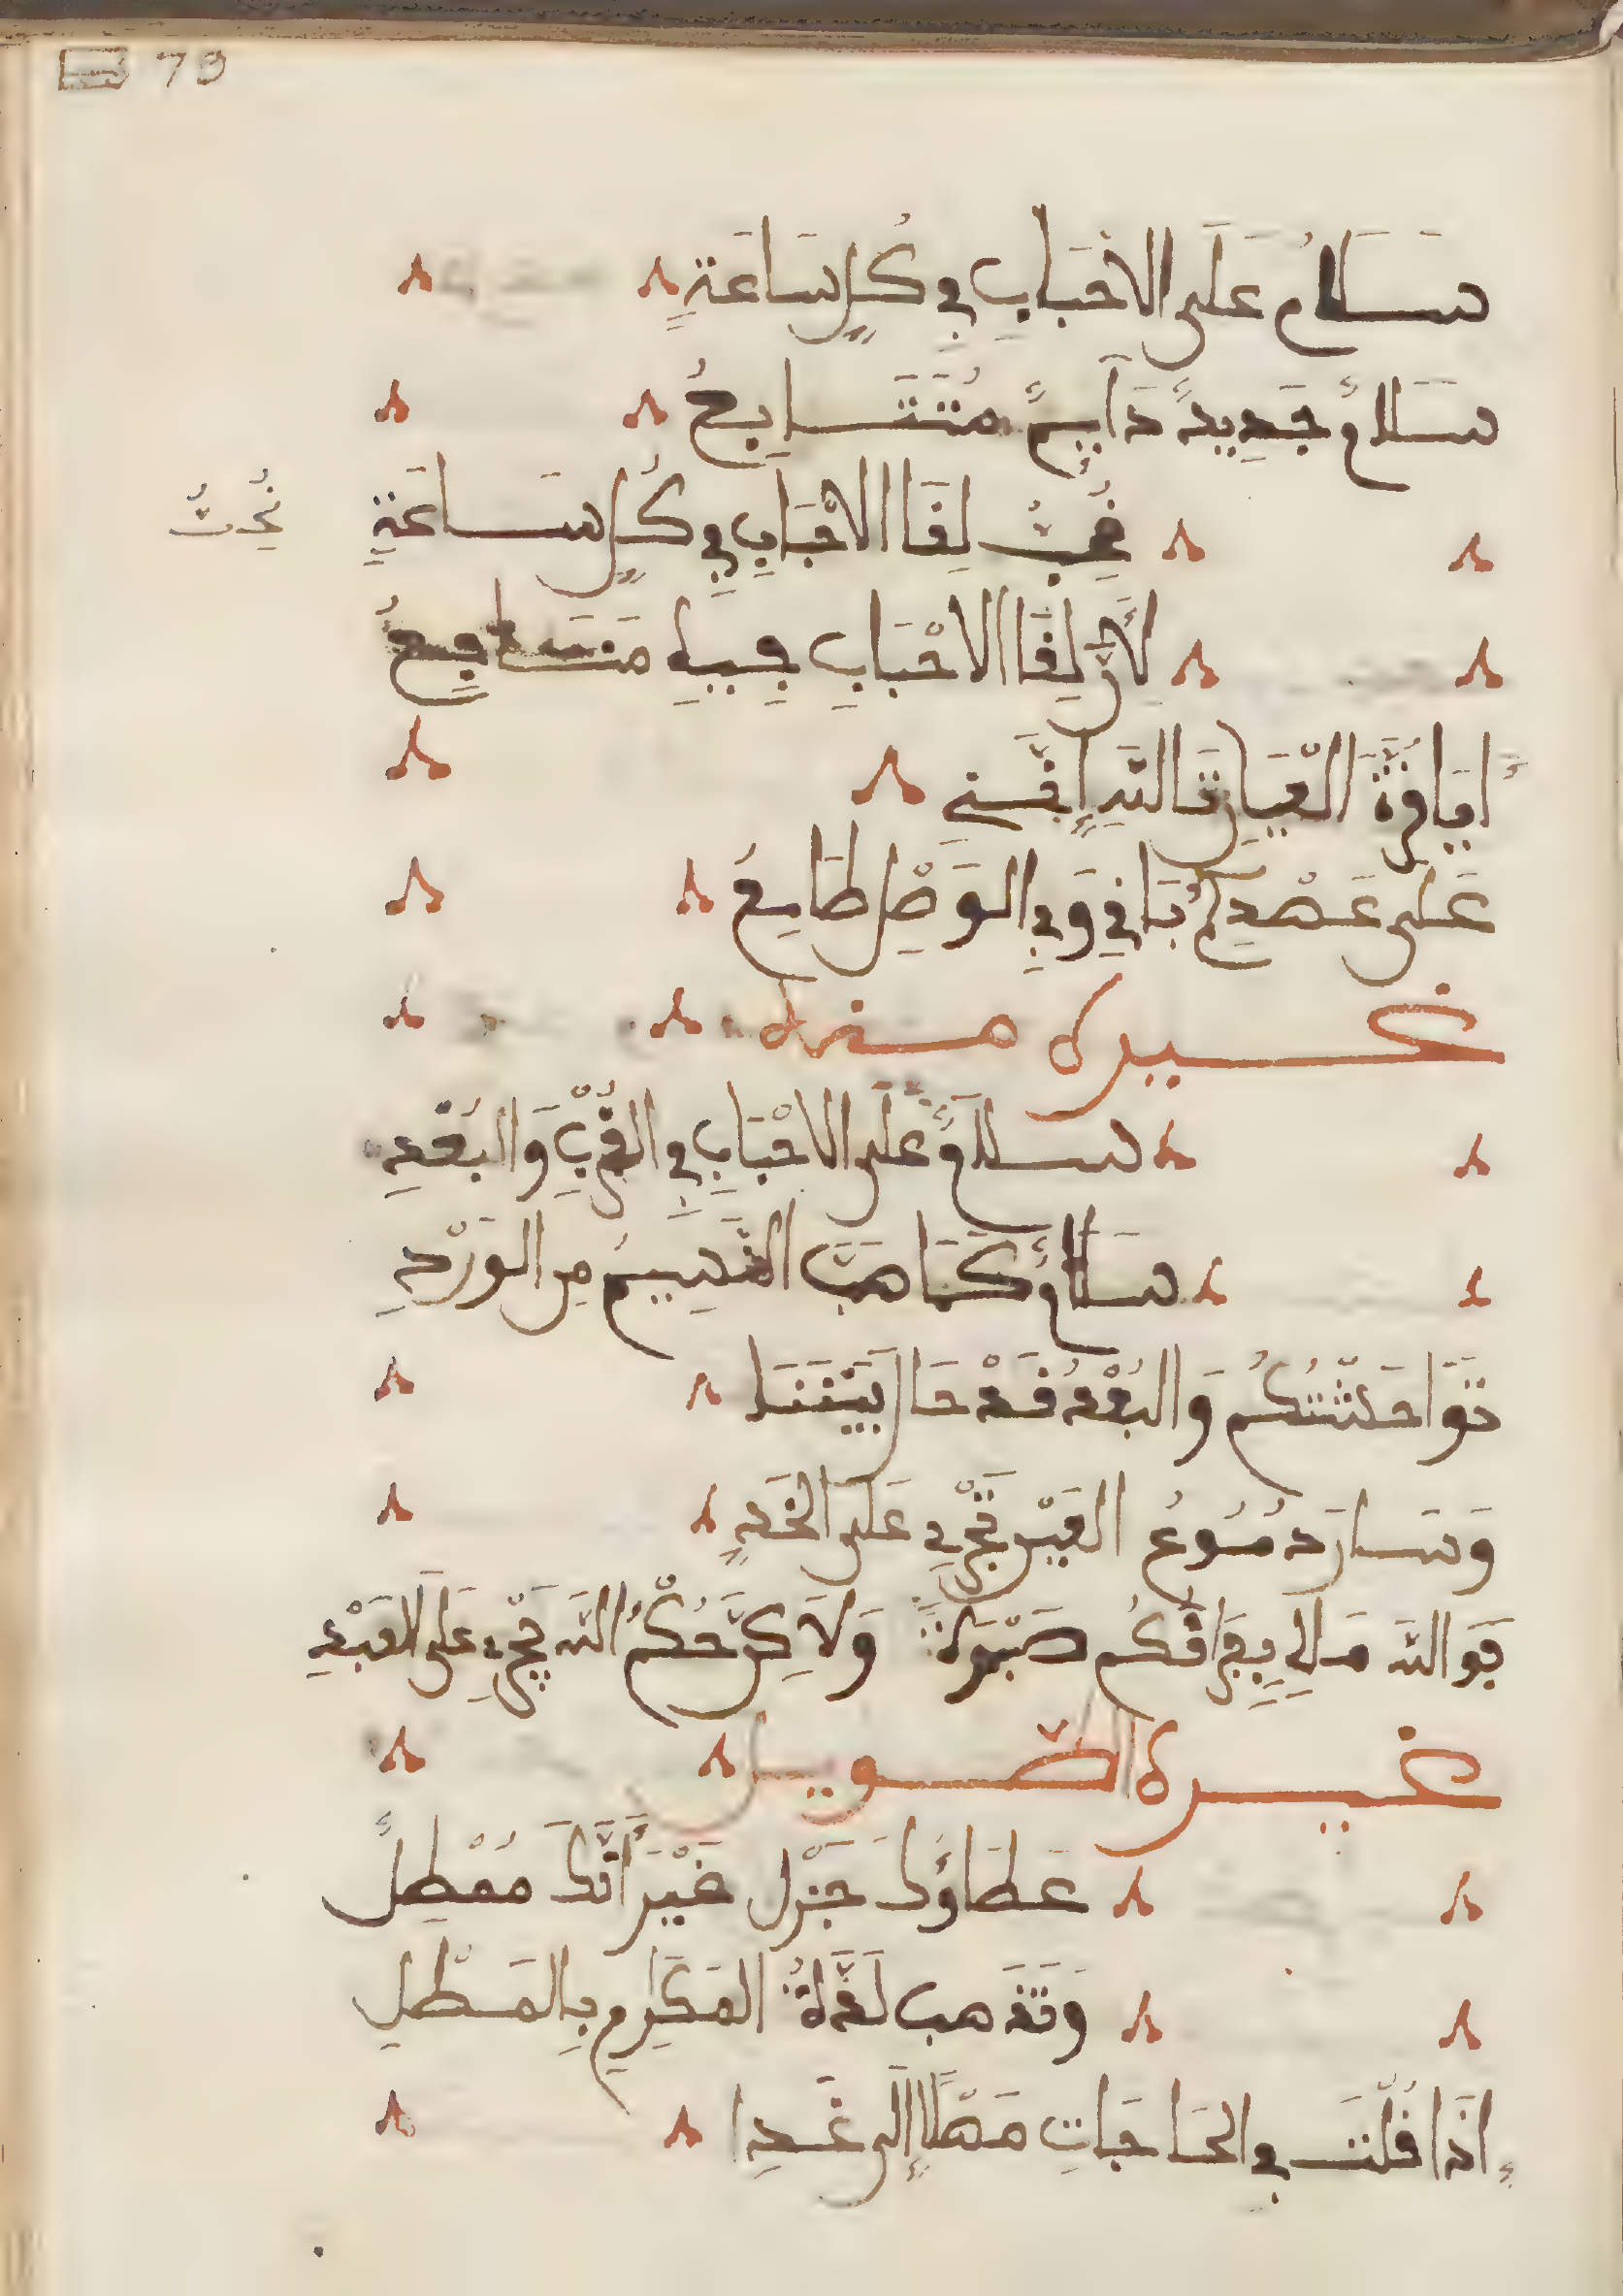 73
سَلَامٌ عَلَى الاحْبَابِ فِي كُلِّ سَاعَةٍ
سَلَامٌ جَدِيدٌ دَآيِمٌ مُتَتَابِعُ
نُحِبُّ لِقَا الاحْبَابِ فِي كُلِّ سَاعَةٍ
نُحِبُّ
لأَنَّ لِقَا الاحْبَابِ فِيهِ مَنَافِعُ
أَيَا قُرَّةَ العَيْنَانِ تَاللهِ إِنَّنِي
عَلَى عَهْدِكُم بَاقِي وَفِي الوَصْلِ طَامِعُ
غيره منه
سَلَامٌ عَلَى الاحْبَابِ فِي القُرْبِ وَالبُعْدِ
سَلَامٌ كَمَا هَبَّ النَّسِيمُ مِنَ الوَرْدِ
تَوَاحَشْتُكُم وَالبُعْدُ قَدْ حَالَ بَيْنَنَا
وَسَارَ دُمُوعُ العَيْنِ تَجْرِي عَلَى الخَدِّ
فَوَاللهِ مَا لِي بِفِرَاقِكُم صَبْوَةٌ وَلَاكِنَّ حُكْمُ اللهِ يَجْرِي عَلَى العَبْدِ
غيره الطويل
عَطَاؤُكَ جَزْل غَيْرَ أَنَّكَ مُمْطِلٌ
وَتَذْهَب لَذَّةُ المَكَارِمِ بِالمَطْلِ
إِذَا قُلْتَ فِي الحَاجَاتِ مَهْلًا إِلَى غَدِ